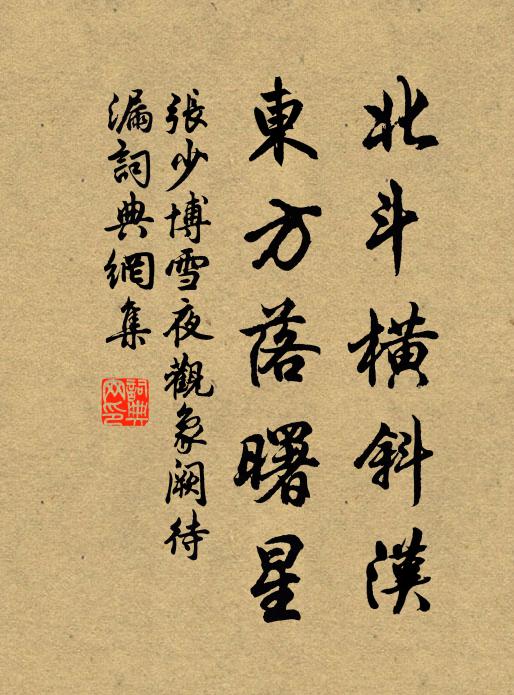 北斗橫斜漢
東方落曙星
張少博雪夜觀象闕待
漏詞典網集
詞典網印